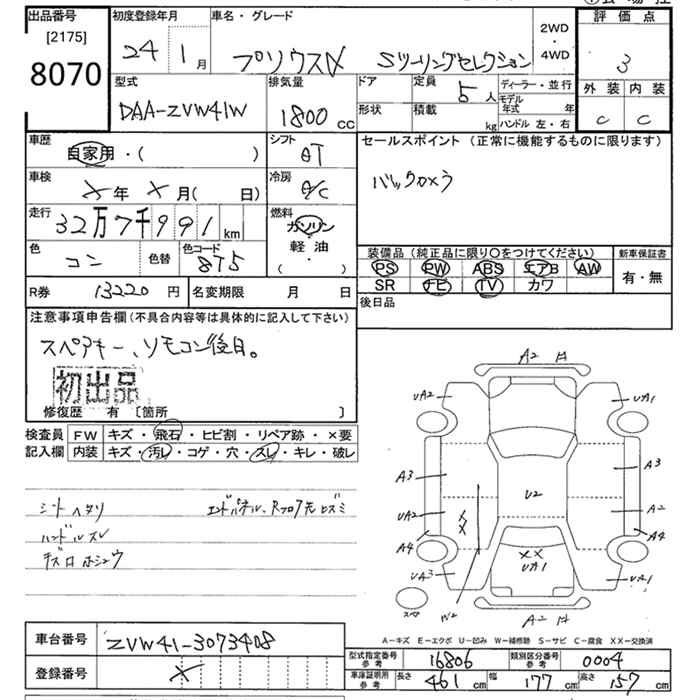 出品番号
[2175]
8070
初度登録年月
24 1 月
車名・グレード
プリウスα Sツーリングセレクション
2WD
・
4WD
評価点
3
外装 内装
C C
型式
DAA-ZVW41W
排気量
1800 cc
ドア
形状
定員 5 人
積載 kg
ディーラー・並行
モデル年式 年
ハンドル 左・右
車歴
自家用・( )
シフト
AT
車検
年 月( 日)
冷房
A/C
走行
32万7千991 km
燃料
ガソリン
軽油
( ・ )
色
コン
色替
色コード
875
セールスポイント(正常に機能するものに限ります)
バックカメラ
装備品(純正品に限り○をつけてください)
PS PW ABS エアB AW
SR TV カワ
新車保証書
有・無
R券 13220 円
名変期限 月 日
後日品
注意事項申告欄(不具合内容等は具体的に記入して下さい)
スペアキー、リモコン後日。
初出品
修復歴 有 〔箇所 〕
検査員 FW キズ・飛石・ヒビ割・リペア跡・×要
記入欄 内装 キズ・汚レ・コゲ・穴・スレ・キレ・破レ
シートヘタリ
ハンドルスレ
エンドパネル、Rフロア先ヒズミ
A2
UA2
UA1
A3
A3
UA2
U2
A2
A4
A4
XX
UA1
UA3
UA1
W2
A2
スペア
A-キズ E-エクボ U-凹み W-補修跡 S-サビ C-腐食 XX-交換済
車台番号 ZVW41-3073408
登録番号
型式指定番号 参考 16806
類別区分番号 参考 0004
車庫証明用 参考 長さ 461 cm 幅 177 cm 高さ 157 cm